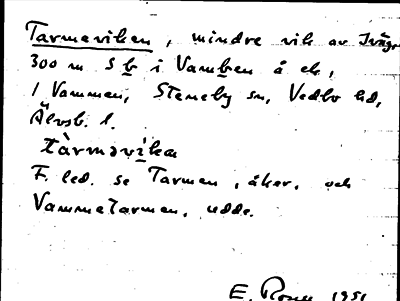 Tarmeviken, mindre vik av Iväg.
300 m S b i Vamben å ek,
1 Vammen, Steneby sn, Vedbo hd,
Älvsb. l.
tàrməvika
F. led. se Tarmen, åker, och
VammeTarmen, udde.
E. 1951